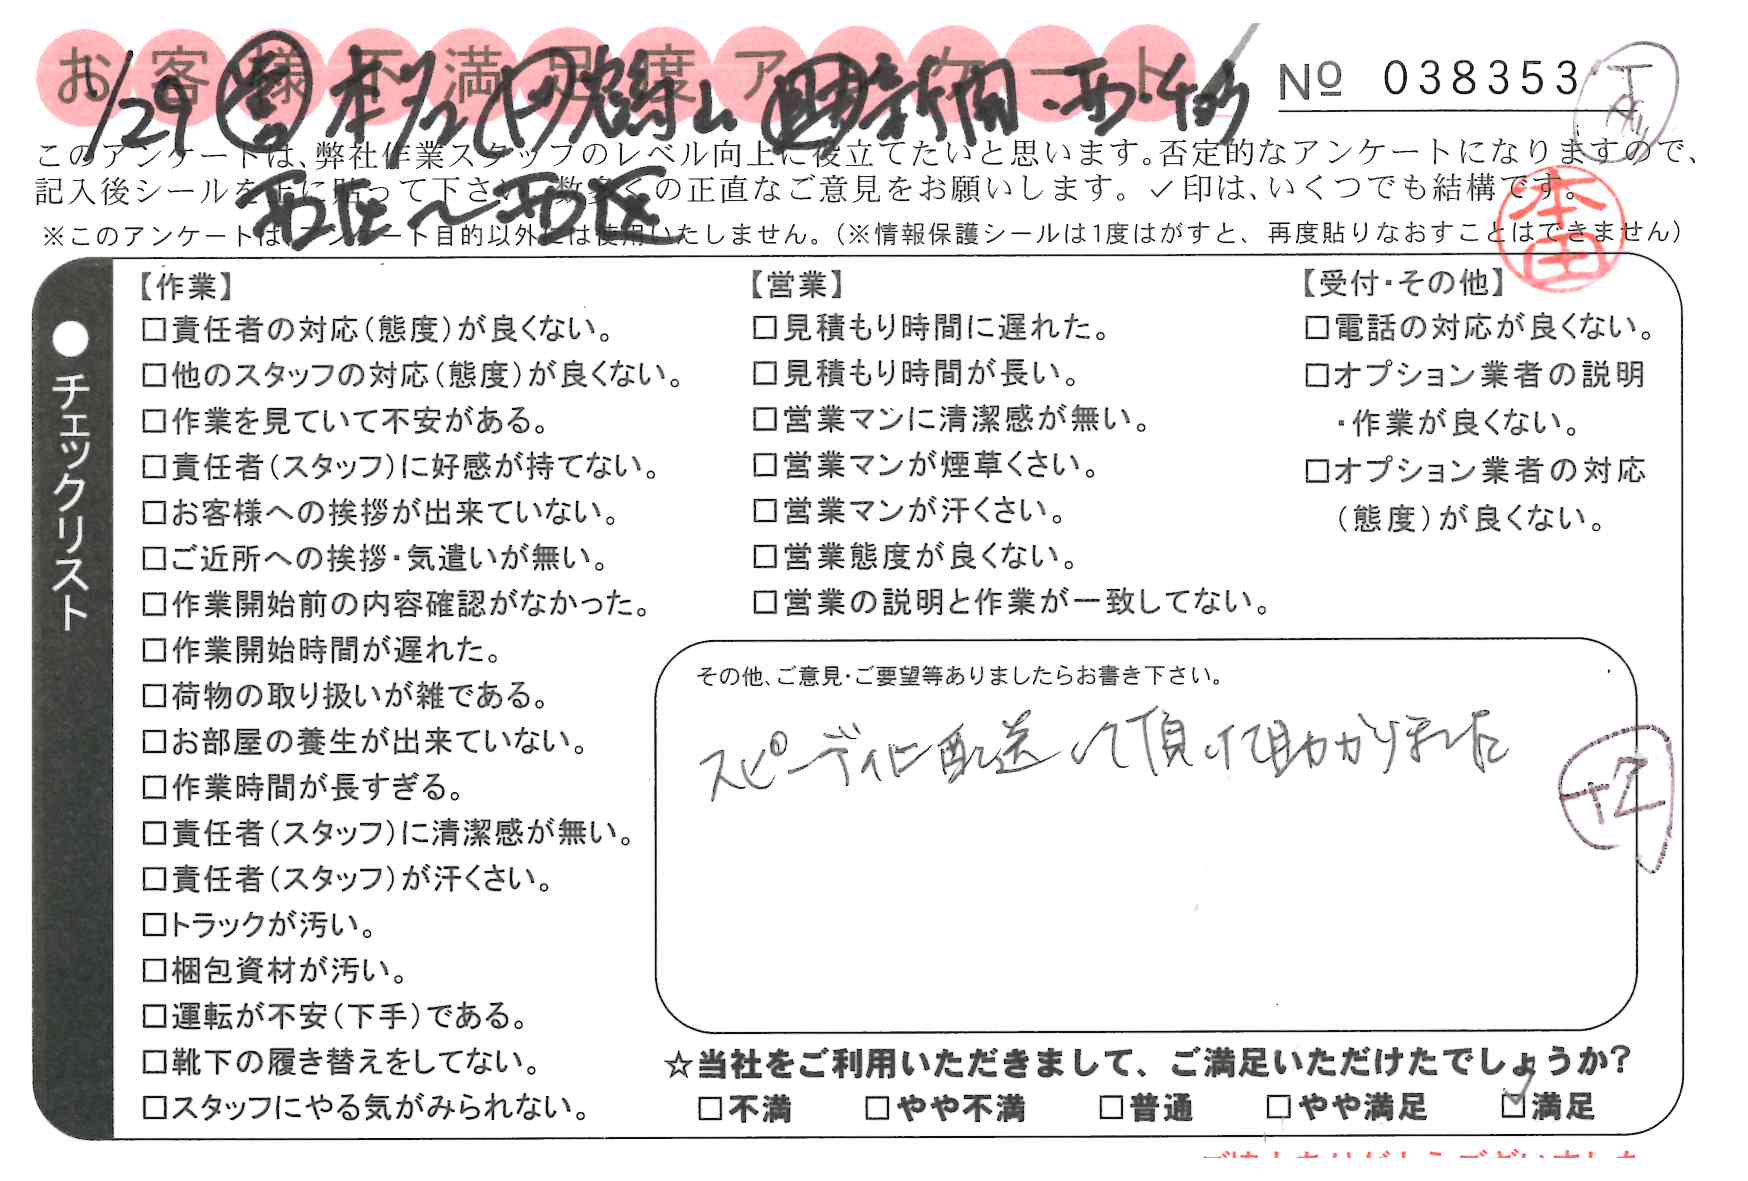 お客様不満足度アンケート
№ 038353
1/29
西区〜西区
このアンケートは、弊社作業スタッフのレベル向上に役立てたいと思います。否定的なアンケートになりますので、
記入後シールを上に貼って下さい。数多くの正直なご意見をお願いします。✓印は、いくつでも結構です。
※このアンケートは、アンケート目的以外には使用いたしません。（※情報保護シールは1度はがすと、再度貼りなおすことはできません）
本田
●チェックリスト
【作業】
□責任者の対応（態度）が良くない。
□他のスタッフの対応（態度）が良くない。
□作業を見ていて不安がある。
□責任者（スタッフ）に好感が持てない。
□お客様への挨拶が出来ていない。
□ご近所への挨拶・気遣いが無い。
□作業開始前の内容確認がなかった。
□作業開始時間が遅れた。
□荷物の取り扱いが雑である。
□お部屋の養生が出来ていない。
□作業時間が長すぎる。
□責任者（スタッフ）に清潔感が無い。
□責任者（スタッフ）が汗くさい。
□トラックが汚い。
□梱包資材が汚い。
□運転が不安（下手）である。
□靴下の履き替えをしてない。
□スタッフにやる気がみられない。
【営業】
□見積もり時間に遅れた。
□見積もり時間が長い。
□営業マンに清潔感が無い。
□営業マンが煙草くさい。
□営業マンが汗くさい。
□営業態度が良くない。
□営業の説明と作業が一致してない。
【受付・その他】
□電話の対応が良くない。
□オプション業者の説明
・作業が良くない。
□オプション業者の対応
（態度）が良くない。
その他、ご意見・ご要望等ありましたらお書き下さい。
スピーディに配送して頂けて助かりました
☆当社をご利用いただきまして、ご満足いただけたでしょうか？
□不満 □やや不満 □普通 □やや満足 ☑満足